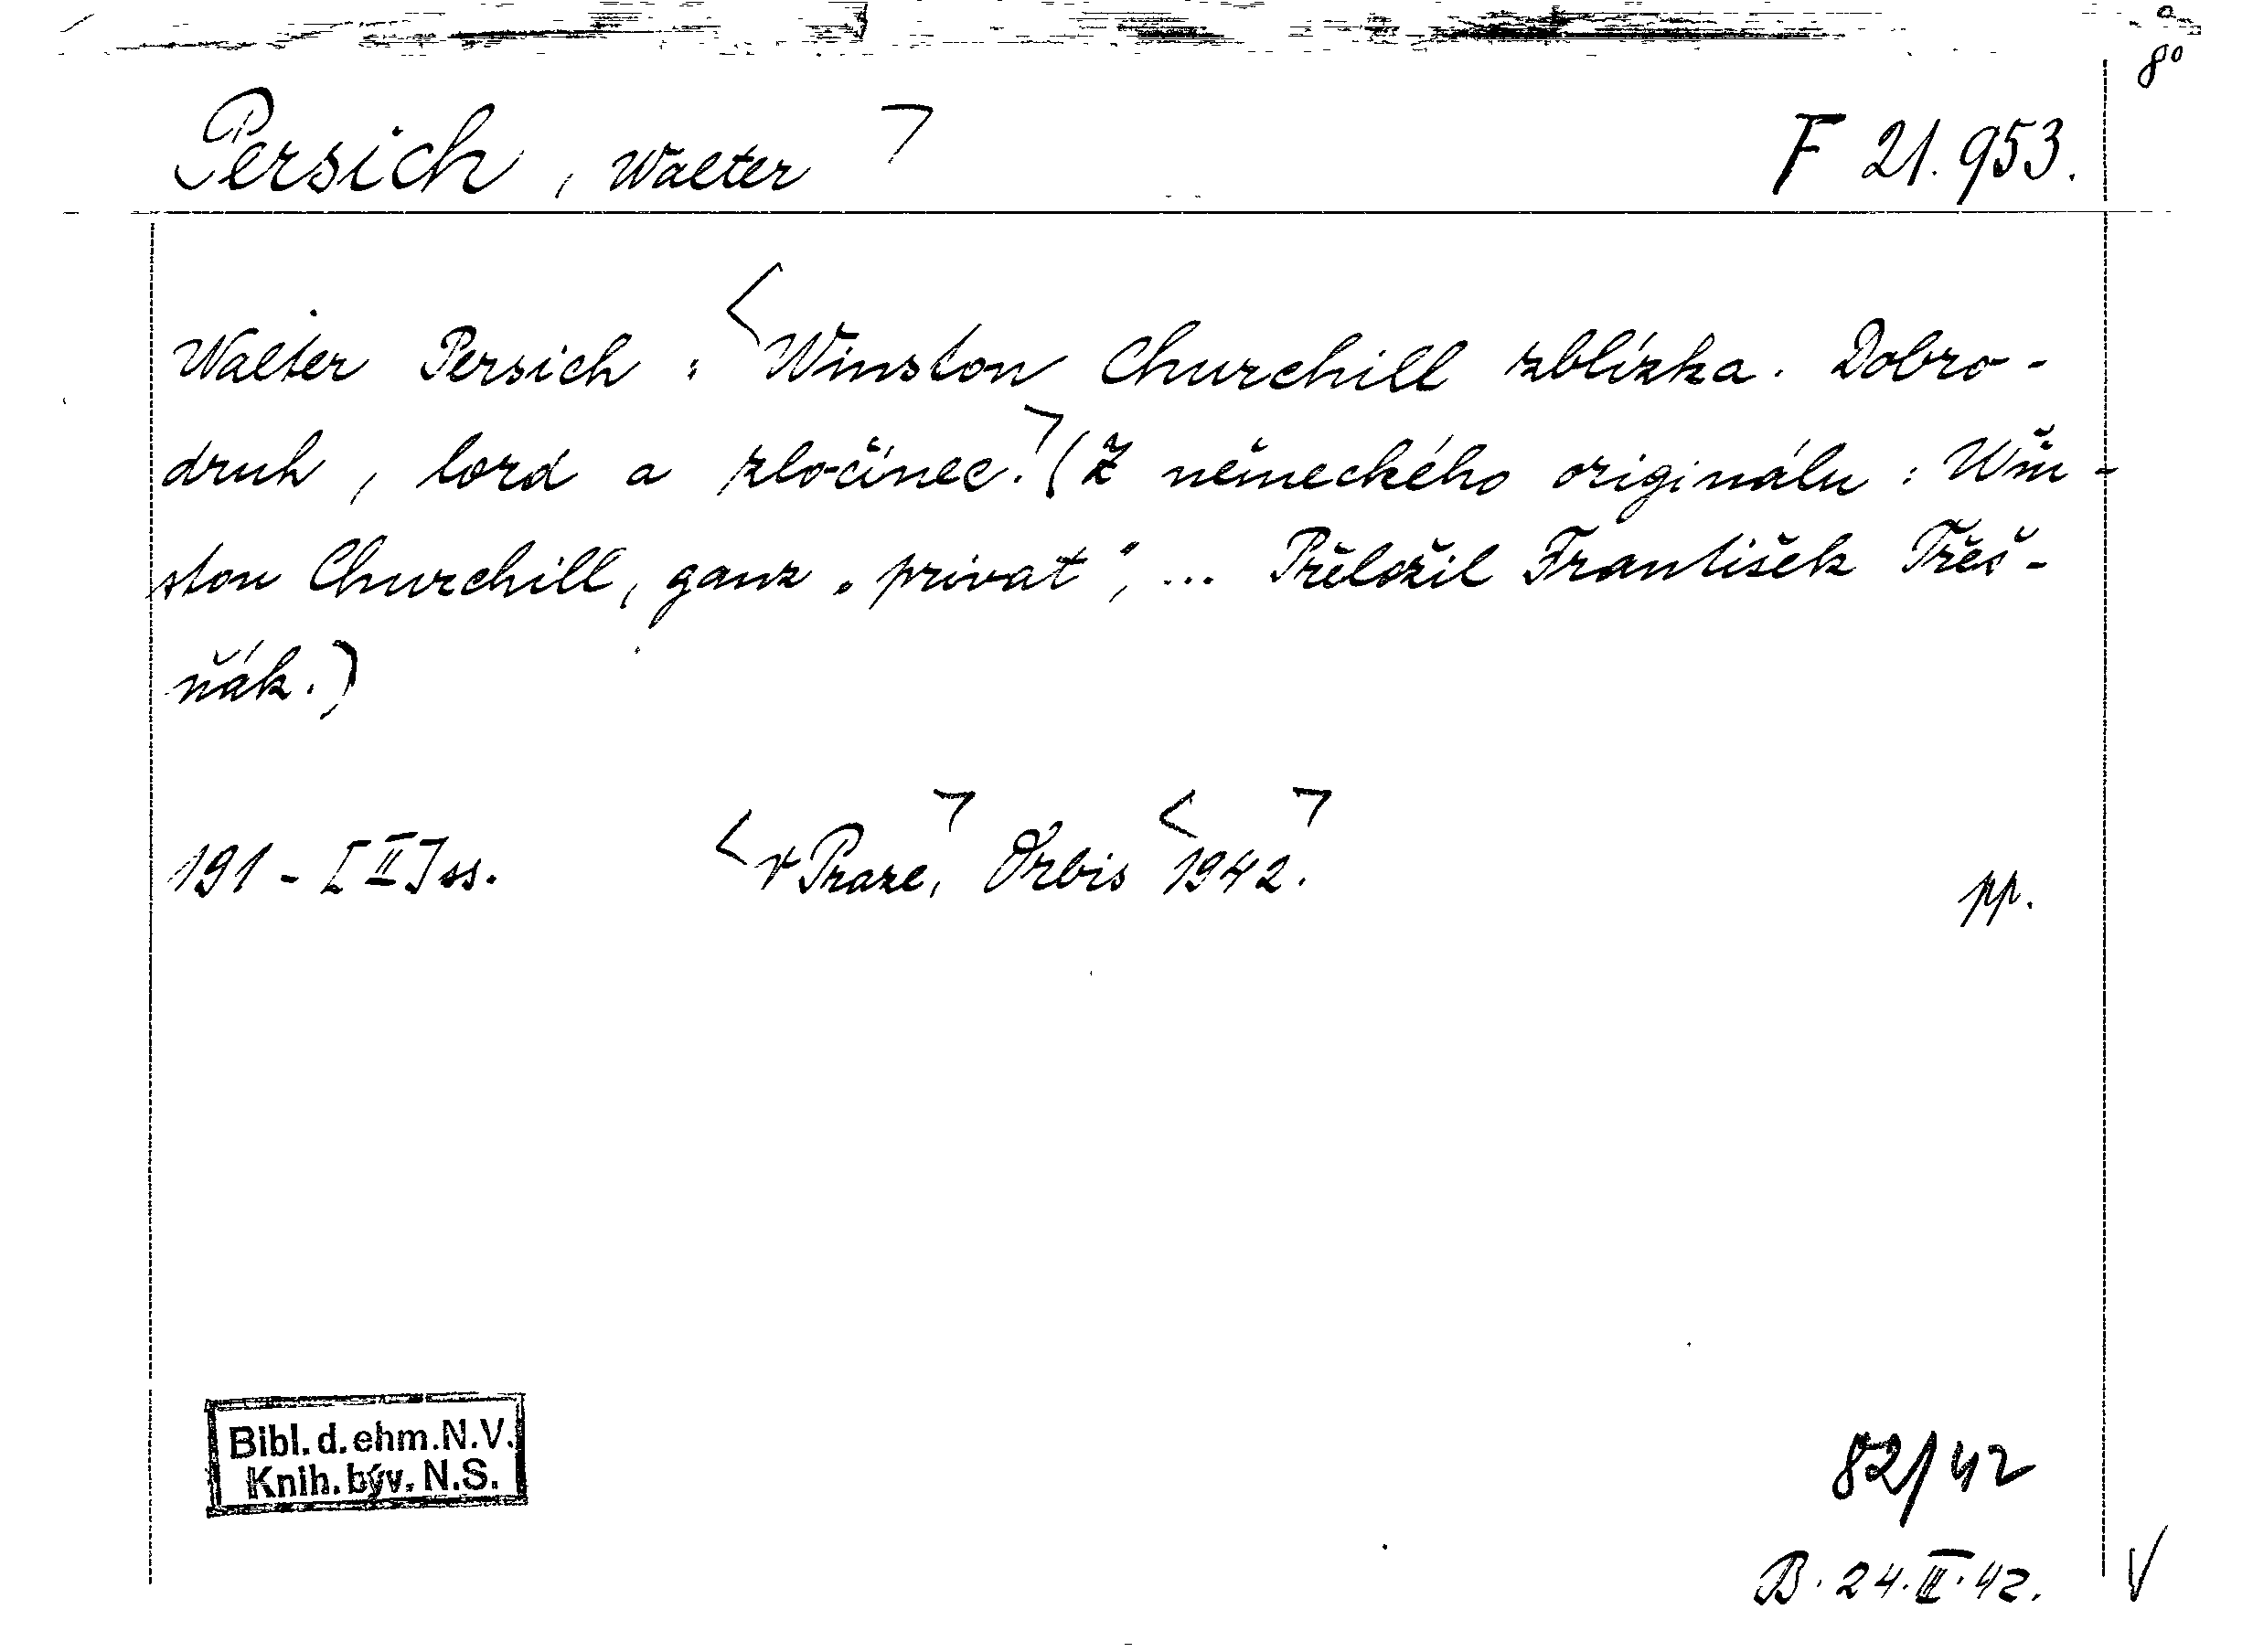 8°
Persich, Walter F 21.953.
Walter Persich: Winston Churchill zblízka. Dobro-
druh, lord a zločinec. (Z německého originálu: Win-
ston Churchill, ganz „privat“, ... Přeložil František Třeš-
ňák.)
191 - [II] ss. v Praze, Orbis 1942. pp.
Bibl. d. ehm. N. V.
Knih. býv. N. S.
82/42
B. 24. III. 42. V